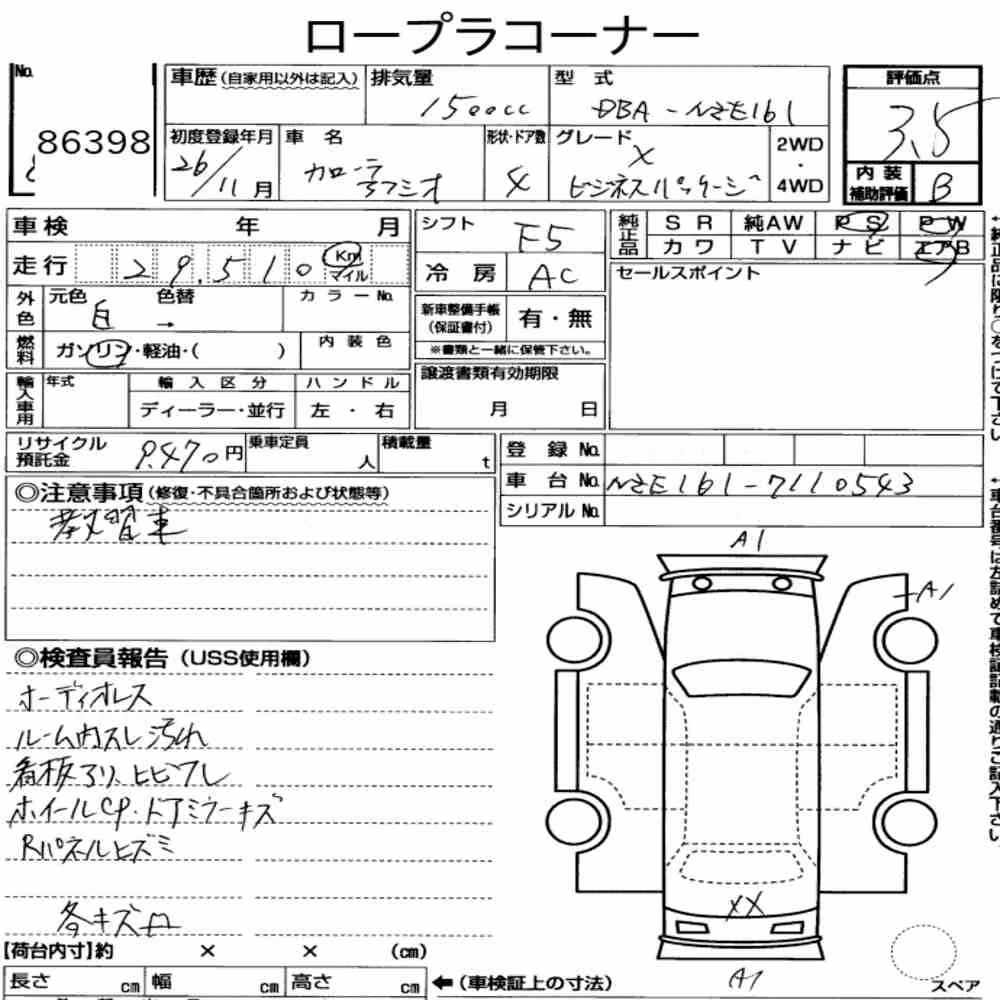 ロープラコーナー
No. 86398
車歴(自家用以外は記入)
排気量 1500cc
型式 DBA-NZE161
評価点 3.5
初度登録年月 26/11月
車名 カローラアクシオ
形状・ドア数 4
グレード X ビジネスパッケージ
2WD・4WD
内装補助評価 B
車検 年 月
走行 29,510 Km マイル
外色 元色 白 色替 → カラーNo.
燃料 ガソリン・軽油・( ) 内装色
輸入車用 年式 輸入区分 ハンドル
ディーラー・並行 左・右
シフト F5
冷房 AC
新車整備手帳(保証書付) 有・無
※書類と一緒に保管下さい。
譲渡書類有効期限
月 日
純正品 SR 純AW PS PW
カワ TV ナビ エアB
セールスポイント
リサイクル預託金 9,470円
乗車定員 人
積載量 t
登録No.
車台No. NZE161-7110543
シリアルNo.
◎注意事項(修復・不具合箇所および状態等)
教習車
◎検査員報告(USS使用欄)
オーディオレス
ルーム内スレ汚れ
看板アリ、ヒビワレ
ホイールCP・ドアミラーキズ
Rパネルヒズミ
各キズ凹
A1
A1
XX
A1
スペア
【荷台内寸】約 × × (cm)
長さ cm 幅 cm 高さ cm ←(車検証上の寸法)
↑純正品に限り○をつけて下さい
↑車台番号は左詰めで車検証記載の通りご記入下さい。